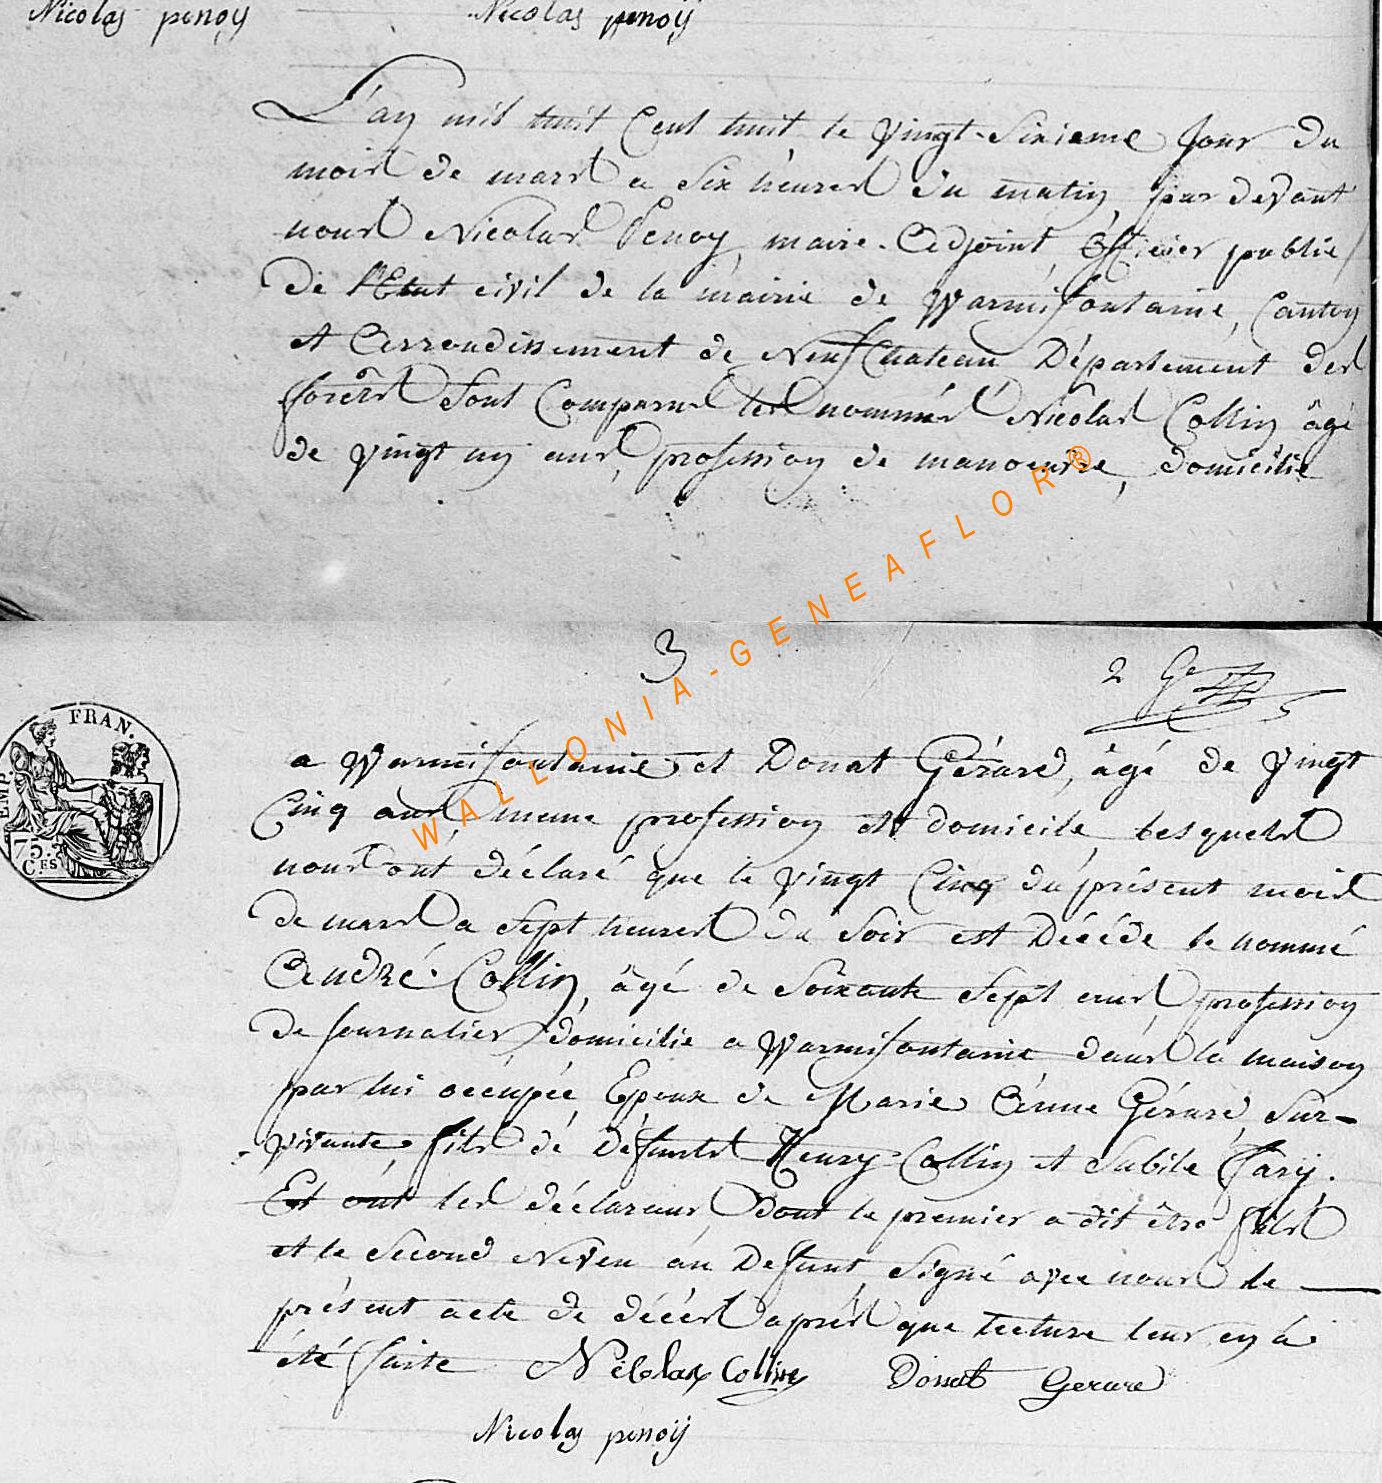 Nicolas penoÿ Nicolas penoÿ
L'an mil huit Cent huit, le vingt-Sixieme Jour du
mois de mars a Six heures du matin, par devant
nous Nicolas Penoy, maire-Adjoint, Officier public
De l'Etat civil de la mairie de Warmifontaine, Canton
et Arrondissement de Neufchateau Département des
forêts Sont Comparus les nommés Nicolas Collin âgé
de vingt un ans, profession de manoeuvre, domicilié
3
2
FRAN.
EMP.
75
C.ES
a Warmifontaine et Donat Gérard, âgé de vingt
Cinq ans, meme profession et domicile, lesquels
nous ont déclaré que le vingt Cinq du présent mois
De mars a Sept heures du Soir est Décédé le nommé
André Collin, âgé de Soixante Sept ans, profession
De Journalier, domicilié a Warmifontaine dans la maison
par lui occupée, Epoux de Marie Anne Gérard, Sur-
-vivante, fils de Défunts Henry Collin et Sibile Jary.
Et ont les déclarans, Dont le premier a dit être fils
et le Second Neveu au Defunt, Signé avec nous le
présent acte de décès après que Lecture leur en à
été faite Nicolas Collin Donat Gerard
Nicolas penoÿ
WALLONIA-GENEAFLOR®